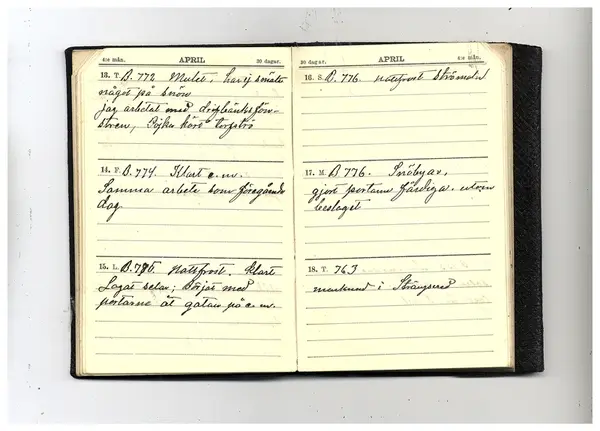 4:e mån. APRIL 30 dagar.
13. T. B. 772 Mulet, har ej smält
något på snön
jag arbetat med drifbänksfön-
stren, Pojkar kört torfströ
14. F. B. 774. Klart e.m.
Samma arbete som föregående
dag
15. L. B. 775. nattfrost. klart
Lagat selar; börjat med
portarne åt gatan på e.m.
30 dagar. APRIL 4:e mån.
16. S. B. 776. nattfrost
17. M. B 776. Snöbyar,
gjort portarne färdiga, utom
beslaget
18. T. 763
marknad i